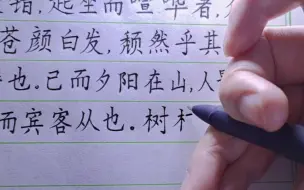 起坐而喧哗者,
苍颜白发,颓然乎其
也。已而夕阳在山,人
而宾客从也。树